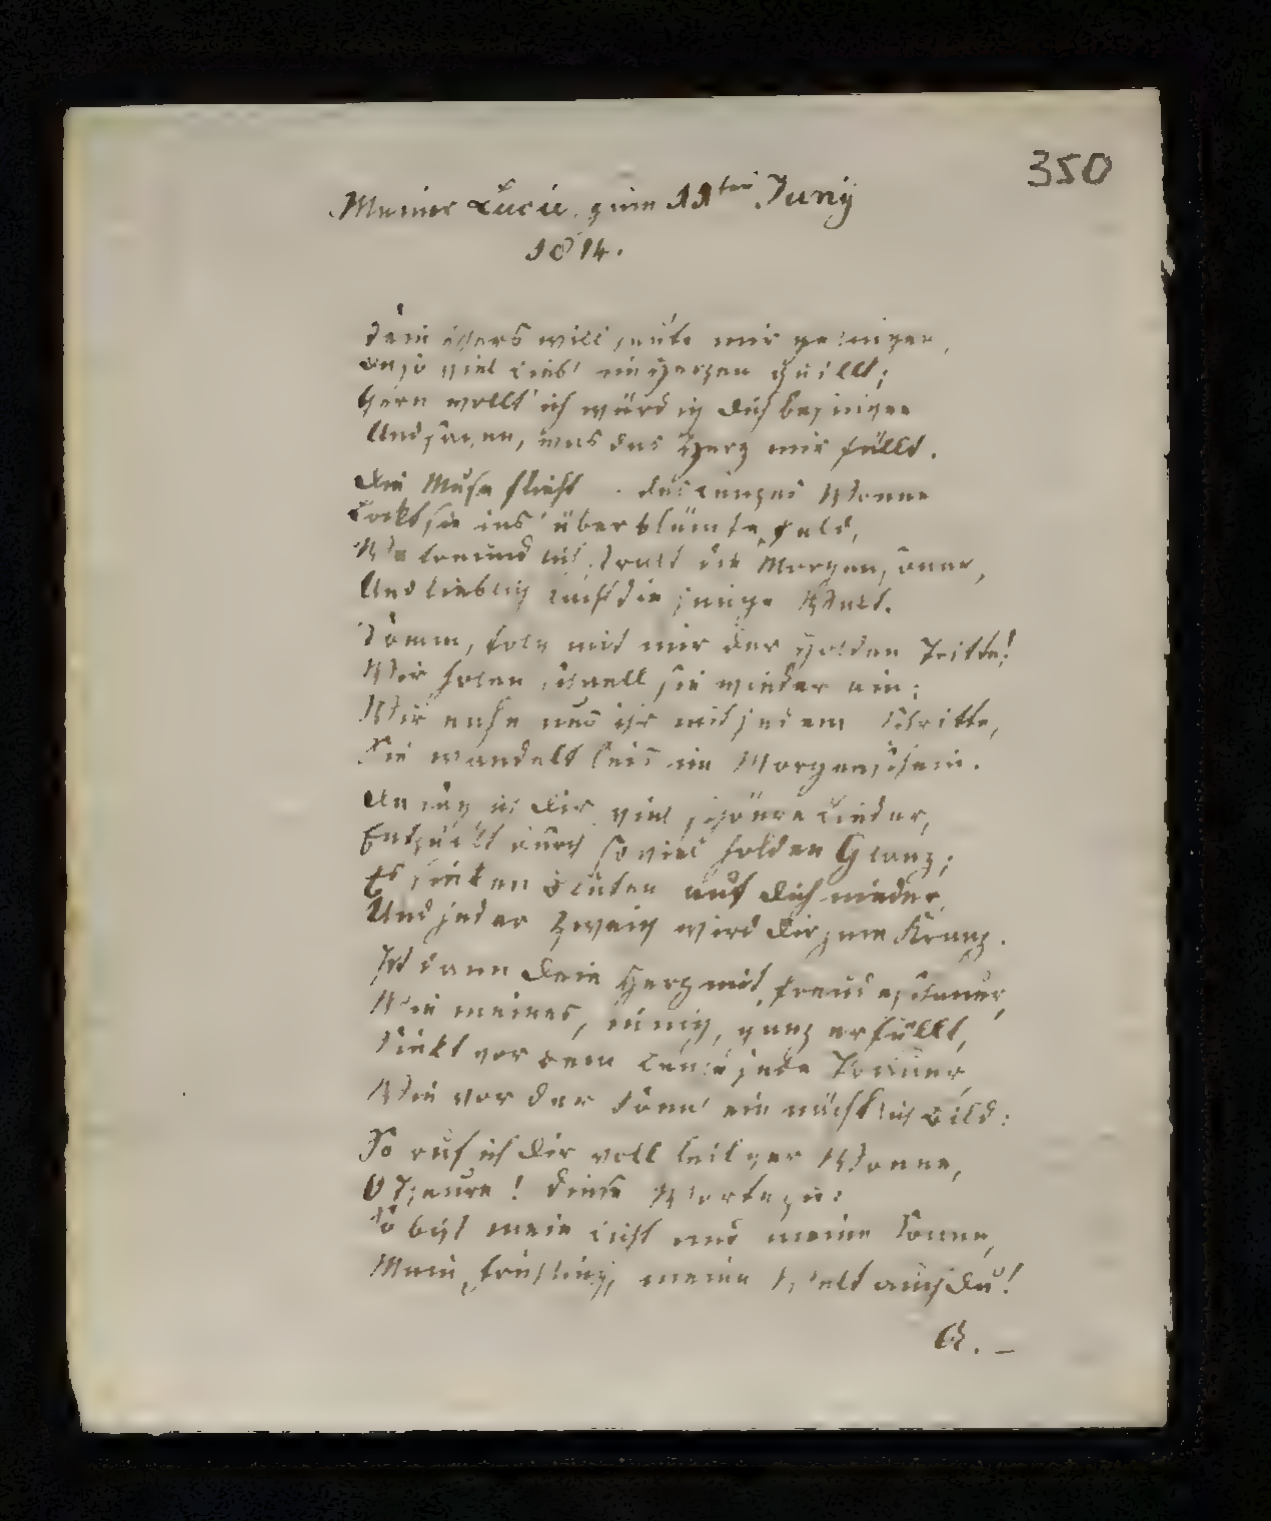 350
Meiner Lucie, zum 11ten Juny
1814.
Kein Vers will heute mir gelingen,
So viel Lieb' im Herzen quillt;
Gern wollt' ich würdig dich besingen
Und sagen, was das Herz mir füllt.
Die Muse flieht. des Lenzes Wonne
Lockt sie ins überblümte Feld,
Wo freundlich strahlt die Morgensonne,
Und lieblich lacht die junge Welt.
Komm, folg mit mir der holden Tritte!
Wir holen schnell sie wieder ein;
Wir nahn uns ihr mit jedem Schritte,
Sie wandelt leis im Morgenschein.
Da sing ich dir viel schönre Lieder,
Entzückt durch so viel holden Glanz;
Es sinken Blüten auf dich nieder,
Und jeder Zweig wird dir zum Kranz.
Ist dann dein Herz mit Freudeschauer,
Wie meines, innig, ganz erfüllt,
Sinkt vor dem Lenze jede Trauer,
Wie vor der Sonn' ein nächtlich Bild:
So ruf ich dir voll heilger Wonne,
O Theure! diese Worte zu:
So bist mein Licht und meine Sonne,
Mein Frühling, meine Welt auch du!